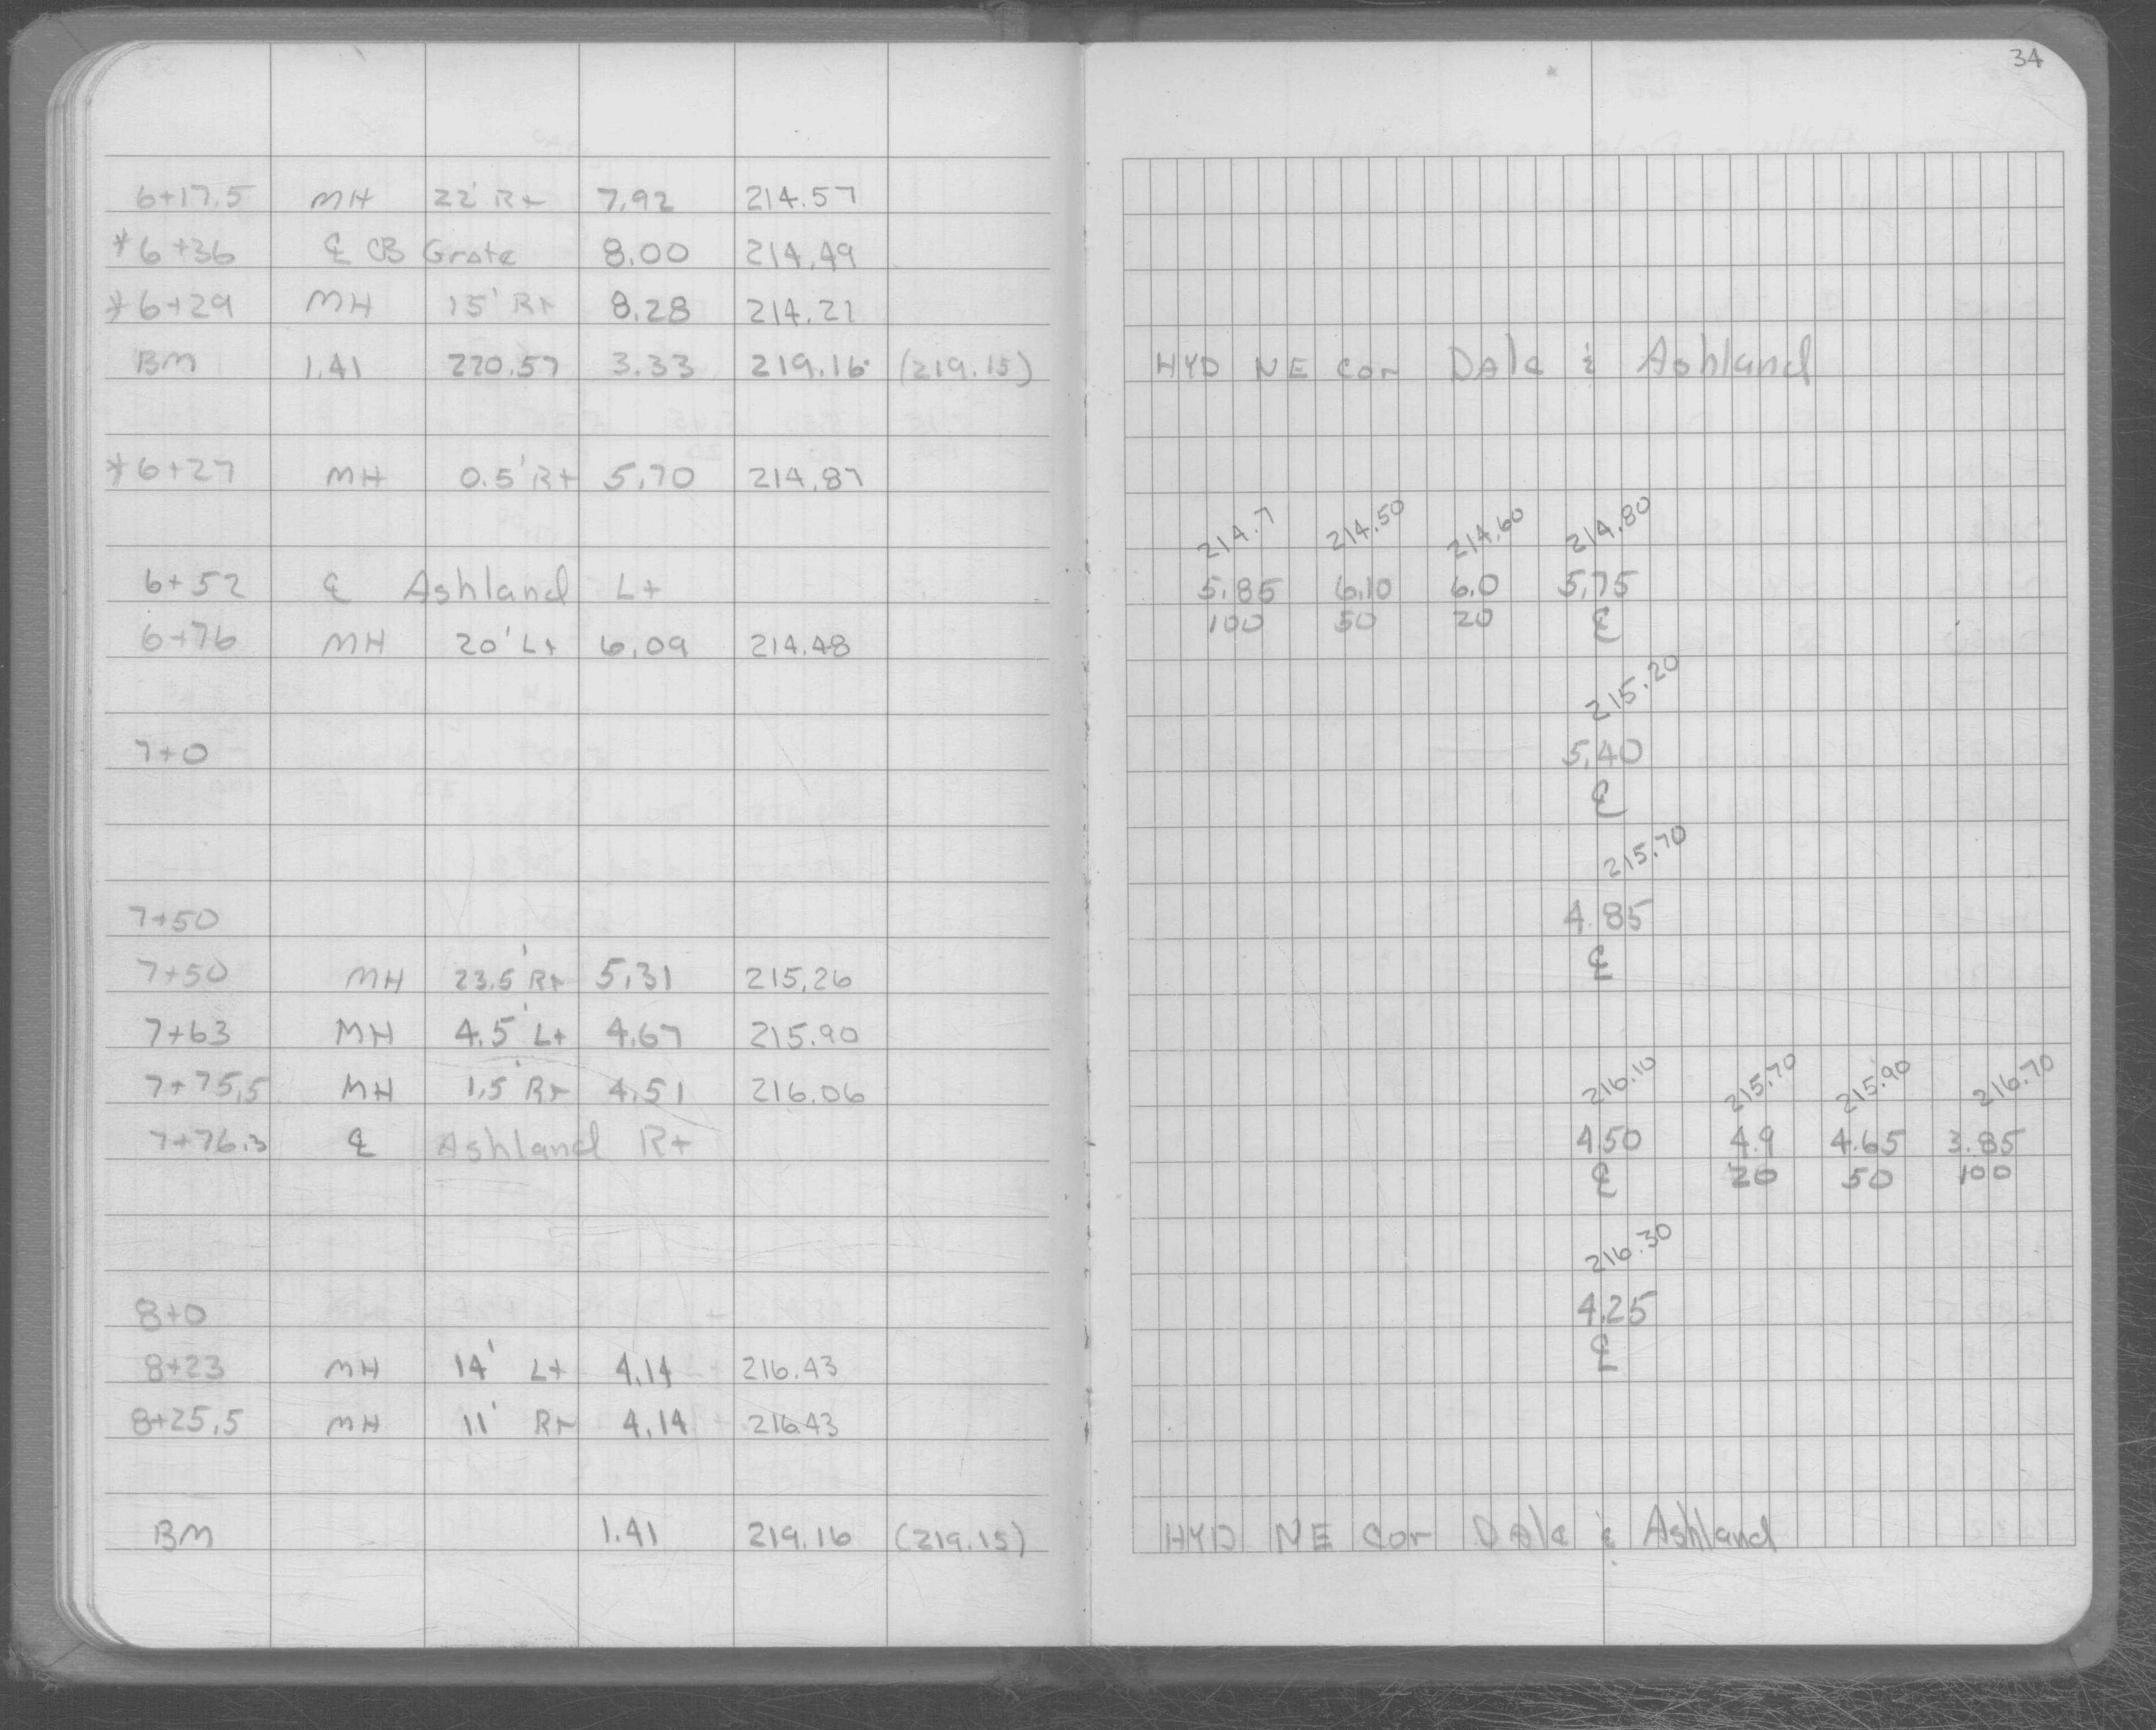 34
6+17.5 MH 22' Rt 7.92 214.57
*6+36 ℄ CB Grate 8.00 214.49
*6+29 MH 15' Rt 8.28 214.21
BM 1.41 220.57 3.33 219.16 (219.15) HYD NE Cor Dale & Ashland
*6+27 MH 0.5' Rt 5.70 214.87
214.7 214.50 214.60 214.80
6+52 ℄ Ashland Lt 5.85 6.10 6.0 5.75
100 50 20 ℄
6+76 MH 20' Lt 6.09 214.48
215.20
7+0 5.40
℄
215.70
7+50 4.85
7+50 MH 23.5' Rt 5.31 215.26 ℄
7+63 MH 4.5' Lt 4.67 215.90
7+75.5 MH 1.5' Rt 4.51 216.06 216.10 215.70 215.90 216.70
7+76.3 ℄ Ashland Rt 4.50 4.9 4.65 3.85
℄ 20 50 100
216.30
8+0 4.25
8+23 MH 14' Lt 4.14 216.43 ℄
8+25.5 MH 11' Rt 4.14 216.43
BM 1.41 219.16 (219.15) HYD NE Cor Dale & Ashland